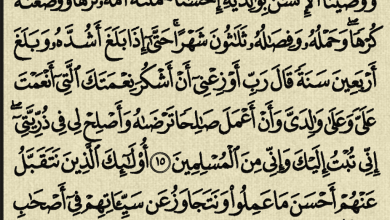 وَوَصَّيْنَا ٱلْإِنسَٰنَ بِوَٰلِدَيْهِ إِحْسَٰنًا حَمَلَتْهُ أُمُّهُۥ كُرْهًا وَوَضَعَتْهُ
كُرْهًا وَحَمْلُهُۥ وَفِصَٰلُهُۥ ثَلَٰثُونَ شَهْرًا حَتَّىٰٓ إِذَا بَلَغَ أَشُدَّهُۥ وَبَلَغَ
أَرْبَعِينَ سَنَةً قَالَ رَبِّ أَوْزِعْنِىٓ أَنْ أَشْكُرَ نِعْمَتَكَ ٱلَّتِىٓ أَنْعَمْتَ
عَلَىَّ وَعَلَىٰ وَٰلِدَىَّ وَأَنْ أَعْمَلَ صَٰلِحًا تَرْضَىٰهُ وَأَصْلِحْ لِى فِى ذُرِّيَّتِىٓ
إِنِّى تُبْتُ إِلَيْكَ وَإِنِّى مِنَ ٱلْمُسْلِمِينَ ١٥ أُو۟لَٰٓئِكَ ٱلَّذِينَ نَتَقَبَّلُ
عَنْهُمْ أَحْسَنَ مَا عَمِلُوا۟ وَنَتَجَاوَزُ عَن سَيِّـَٔاتِهِمْ فِىٓ أَصْحَٰبِ